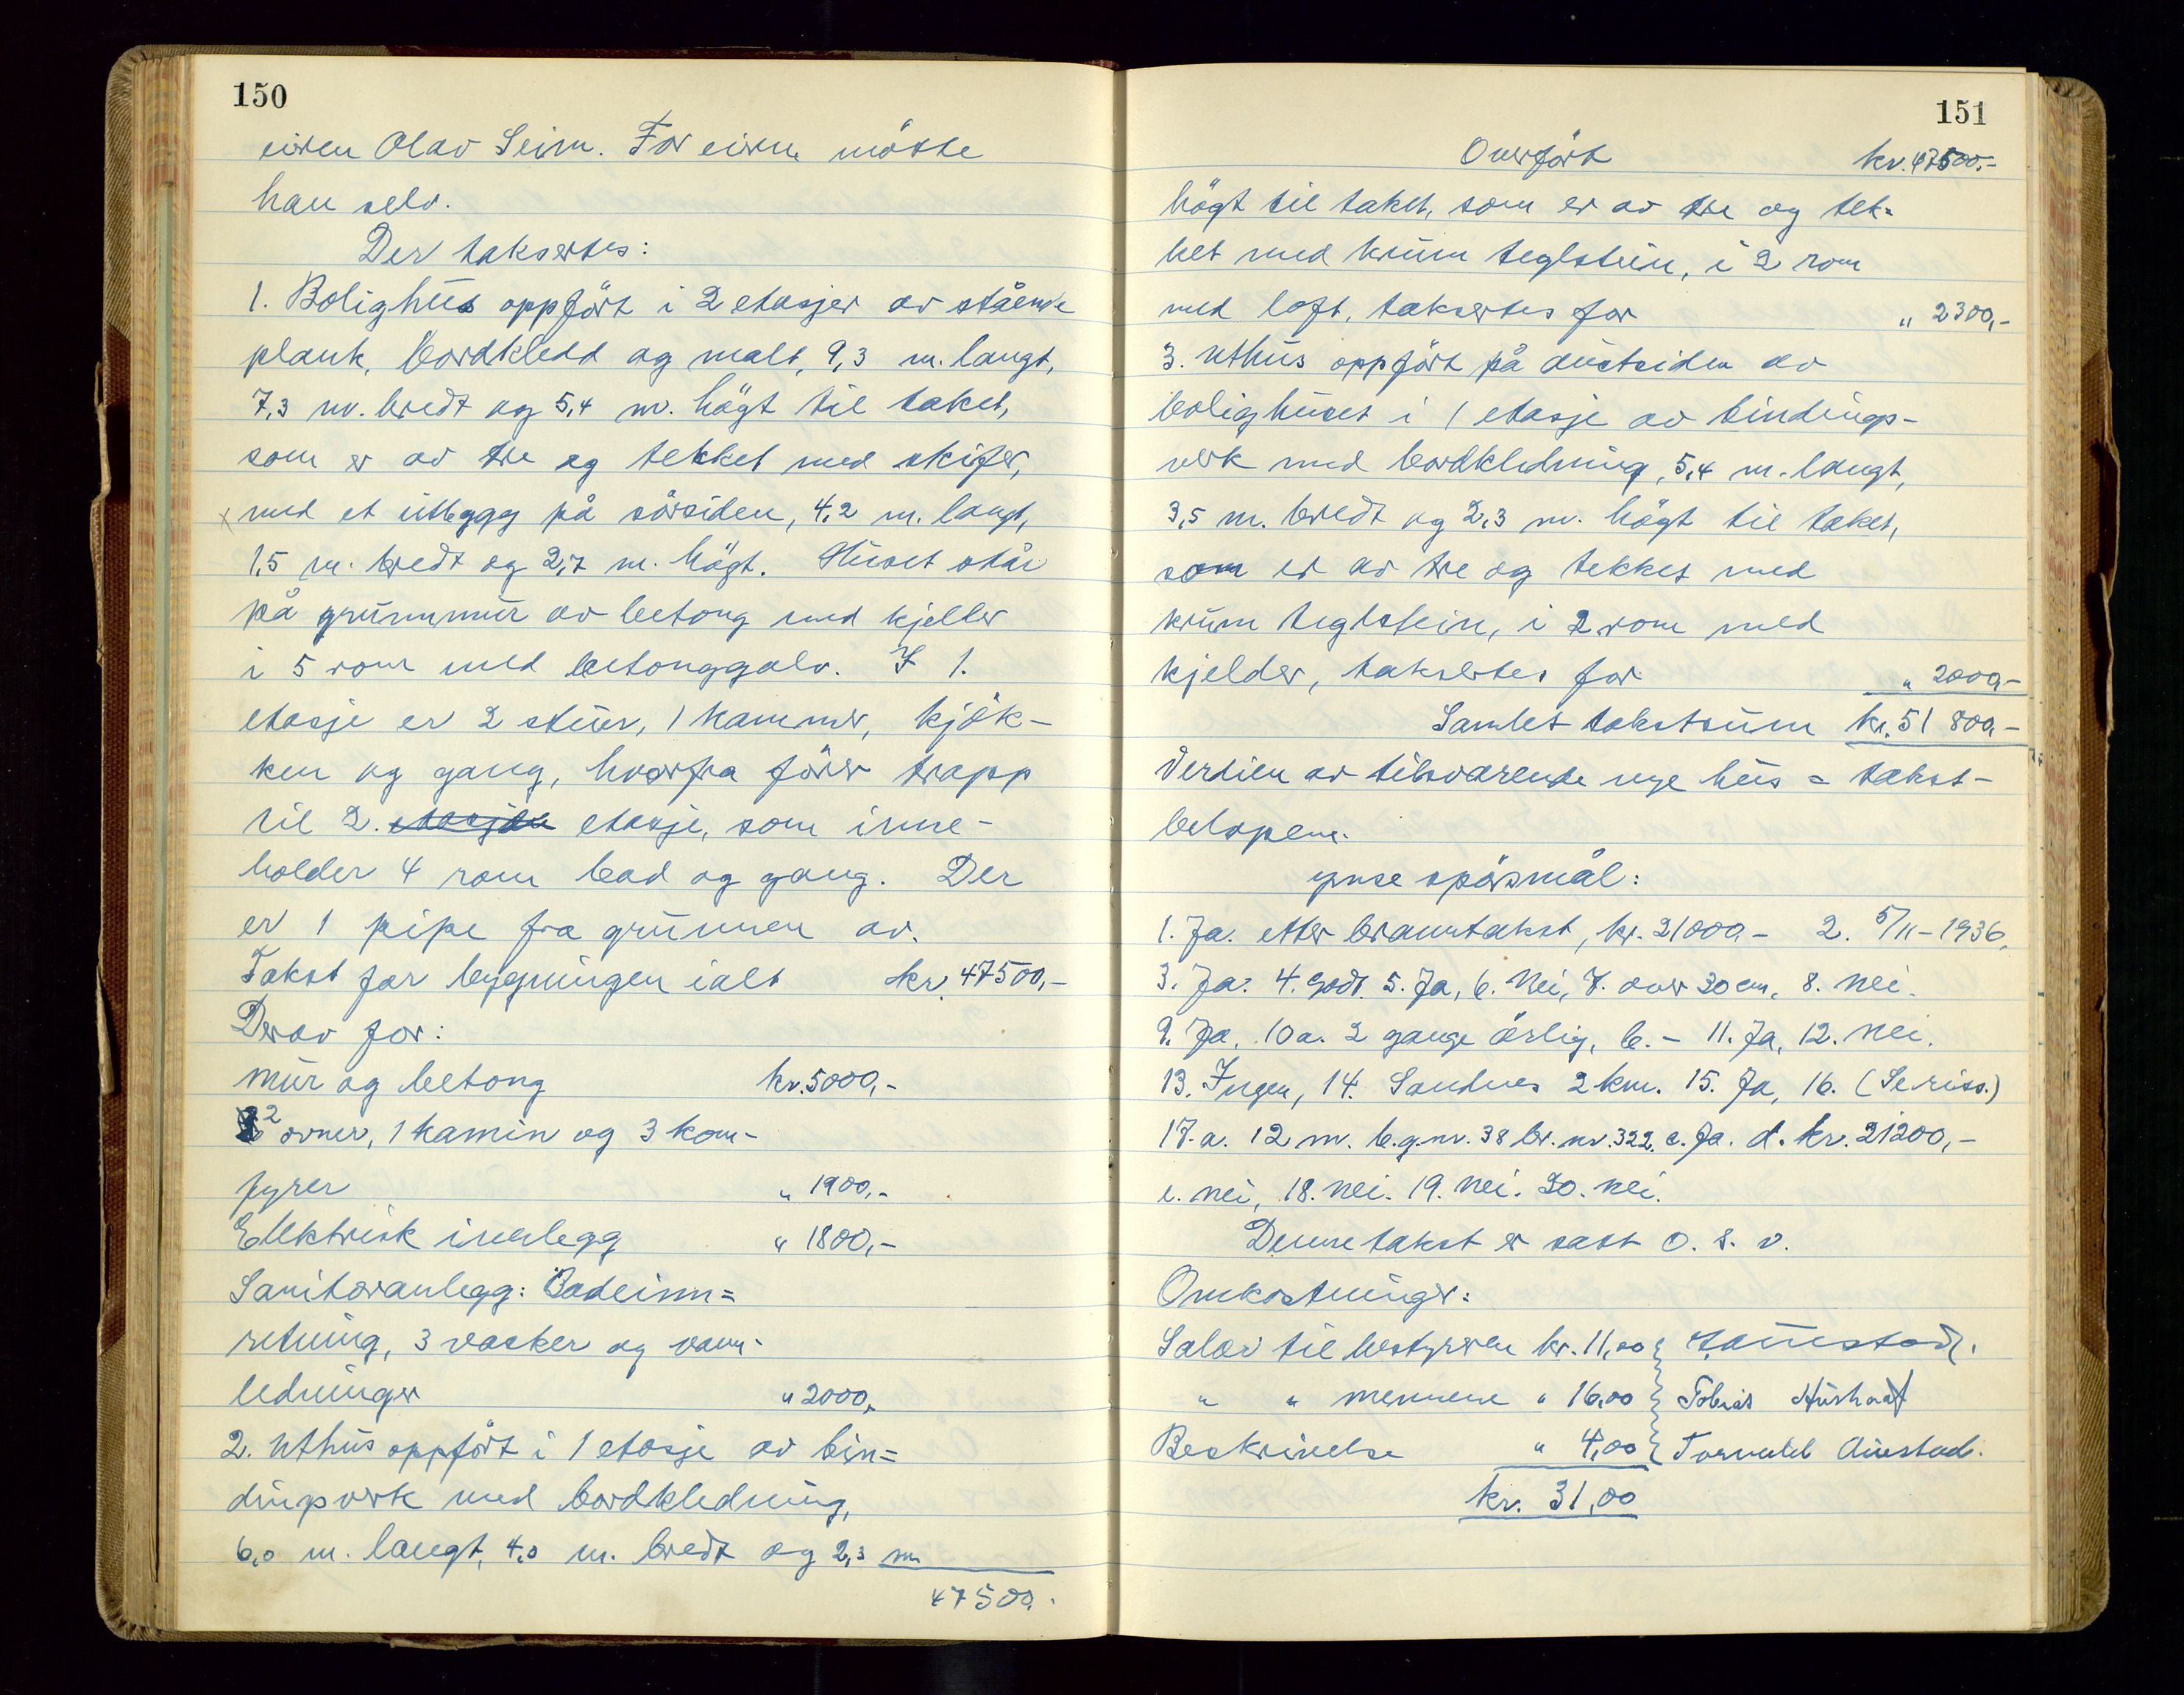 150
eieren Olav Seim. For eieren mötte
han selv.
Der taksertes:
1. Bolighus oppfört i 2 etasjer av stående
plank, bordkledd og malt, 9,3 m. langt,
7,3 m. bredt og 5,4 m. högt til taket,
som er av tre og tekket med skifer,
x med et utbygg på sörsiden, 4,2 m. langt,
1,5 m. bredt og 2,7 m. högt. Huset står
på grunnmur av betong med kjeller
i 5 rom med betonggolv. I 1.
etasje er 2 stuer, 1 kammer, kjök-
ken og gang, hvorfra förer trapp
til 2. etasjen etasje, som inne-
holder 4 rom bad og gang. Der
er 1 pipe fra grunnen av.
Takst for bygningen ialt kr. 47500,-
Derav for:
mur og betong kr. 5000,-
2 ovner, 1 kamin og 3 kom-
fyrer " 1900,-
Elektrisk innlegg " 1800,-
Sanitæranlegg: Badeinn=
retning, 3 vasker og vann-
ledninger " 2000,-
2. Uthus oppfört i 1 etasje av bin=
dingsverk med bordkledning,
6,0 m. langt, 4,0 m. bredt og 2,3 m
47500.-
151
Overfört kr. 47500.-
högt til taket, som er av tre og tek=
ket med krum teglstein, i 2 rom
med loft, taksertes for " 2300,-
3. Uthus oppfört på austsiden av
bolighuset i 1 etasje av bindings-
verk med bordkledning, 5,4 m. langt,
3,5 m. bredt og 2,3 m. högt til taket,
som er av tre og tekket med
krum teglstein, i 2 rom med
kjelder, taksertes for " 2000,-
Samlet takstsum kr. 51 800,-
Verdien av tilsvarende nye hus = takst-
belopene.
Ymse spörsmål:
1. Ja. etter branntakst, kr. 21000,- 2. 5/11-1936.
3. Ja. 4. Godt. 5. Ja, 6. Nei, 7. over 30 cm, 8. Nei.
9. Ja, 10 a. 2 gange årlig, b. - 11. Ja, 12. Nei.
13. Ingen, 14. Sandnes 2 km. 15. Ja, 16. (Se riss.)
17. a. 12 m. b. g.nr. 38 br. nr. 322. c. Ja. d. kr. 21200,-
e. nei, 18. nei. 19. nei. 20. nei.
Denne takst er satt o. s. v.
Omkostninger:
Salær til bestyreren kr. 11,00 }
" " mennene " 16,00 } Tobias
Beskrivelse " 4,00 } Torvald Austad.
kr. 31,00